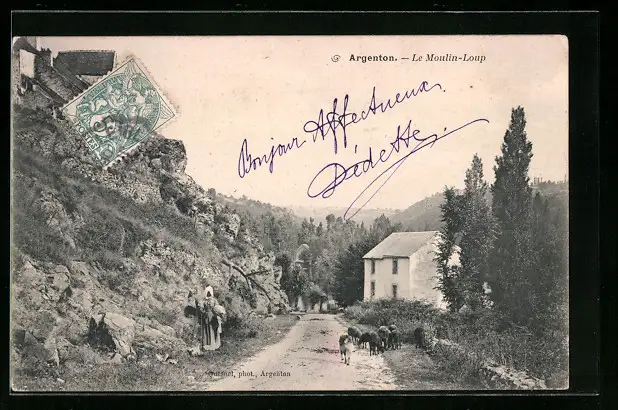 Argenton. — Le Moulin-Loup
Bonjour Affectueux.
Dédette
phot., Argenton